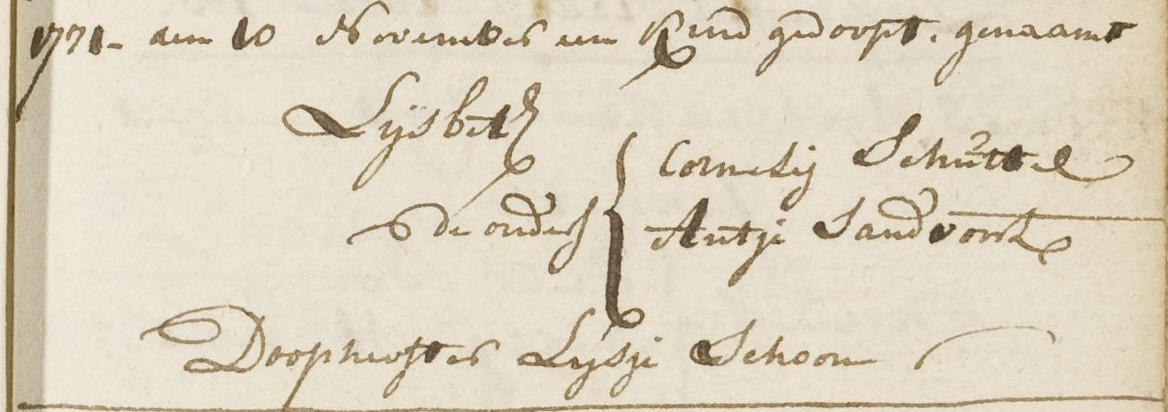 1771- den 10 November een Kind gedoopt. genaamt
Lijsbeth
de ouders { Cornelis Schuttel
Antje Sandvoort
Doophefster Lijsje Schoon